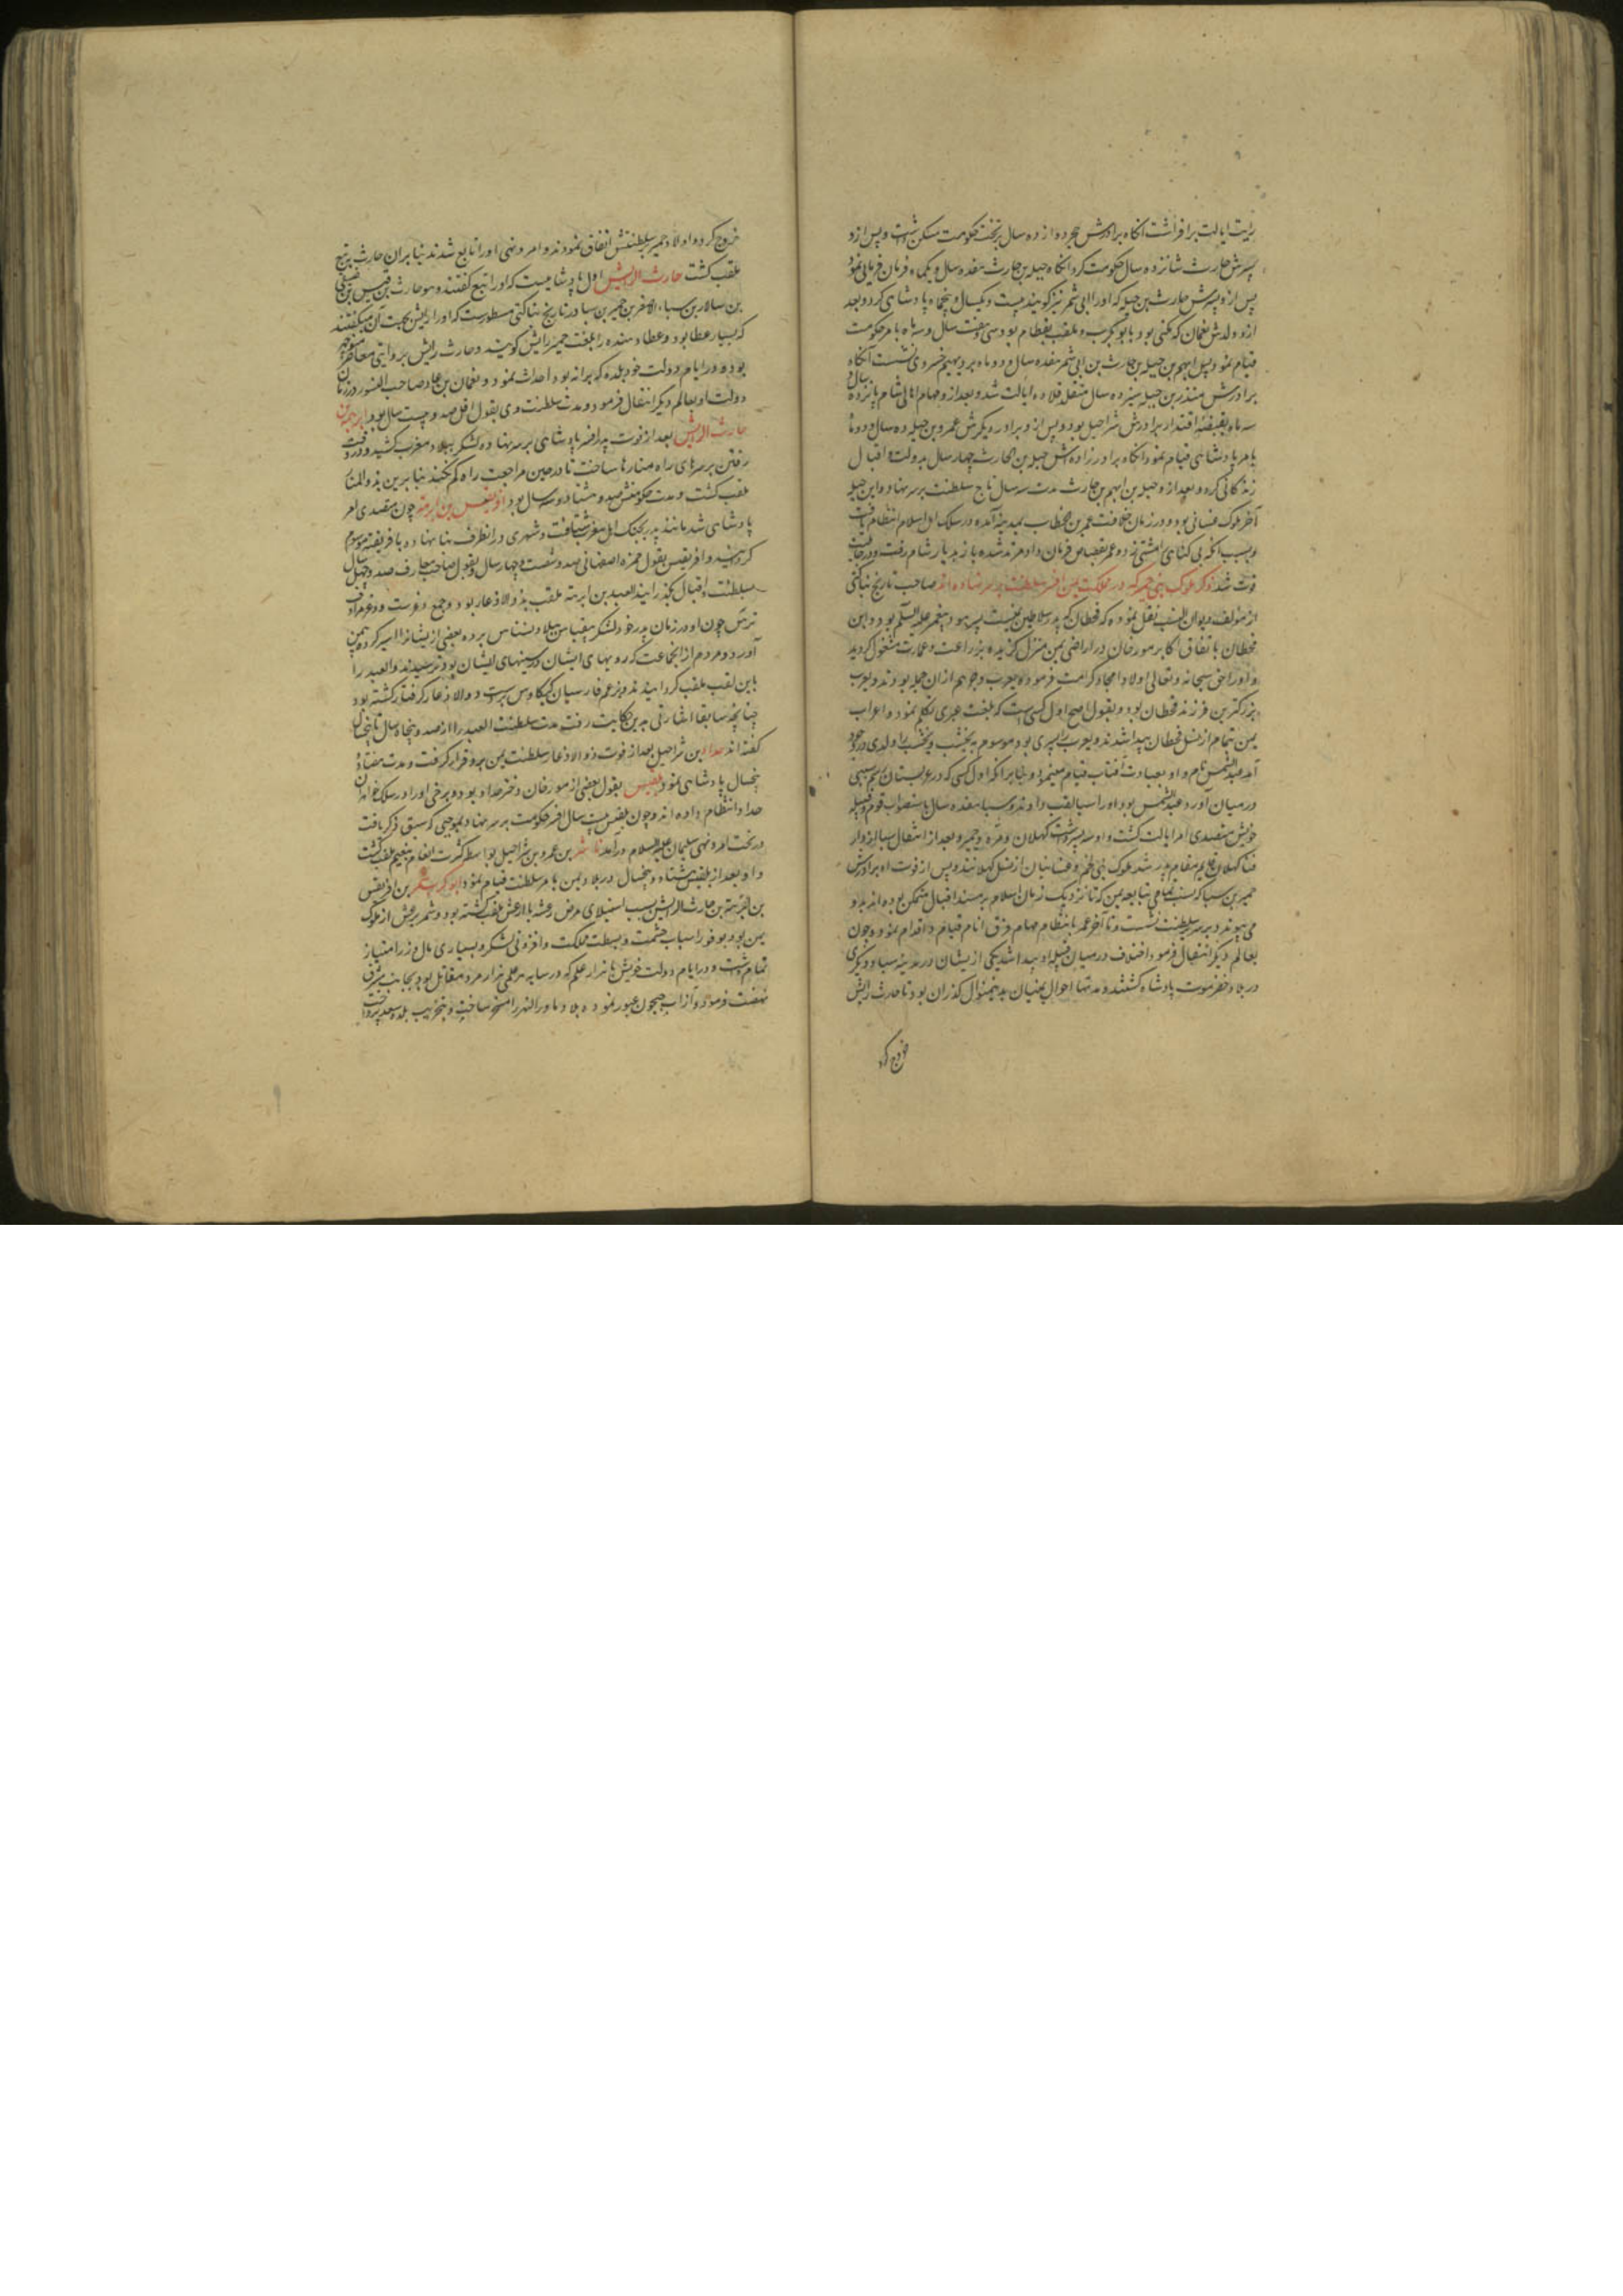 رایت ایالت برافراشت آنکاه برادرش حجر دوازده سال بر تخت حکومت متمکن داشت و پس ازو
پسرش حارث شانزده سال حکومت کرد آنکاه جبله بن حارث هفده سال و یکماه فرمان فرمائی نمود
پس ازو پسرش حارث بن جبله که او را ابی شمر نیز کویند بیست و یکسال و پنجماه پادشاهی کرد و بعد
ازو ولدش نعمان که مکنی بود بابوکرب و ملقب بقطام بود سی و هفت سال و سه ماه بامر حکومت
قیام نمود پس ایهم بن جبله بن حارث بن ابی شمر هفده سال و دو ماه بر دیهیم خسروی نشست آنکاه
برادرش منذر بن جبله سیزده سال متقلد قلاده ایالت شد و بعد ازو مهام اهالی شام پانزده سال و
سه ماه بقبضه اقتدار برادرش شراحیل بود و پس ازو برادر دیکرش عمرو بن جبله ده سال و دو ماه
بامر پادشاهی قیام نمود آنکاه برادرزاده اش جبله بن الحارث چهار سال بدولت و اقبال
زندکانی کرد و بعد ازو جبله بن ایهم بن حارث مدت سه سال تاج سلطنت بر سر نهاد و این جبله
آخر ملوک غسانی بود و در زمان خلافت عمر بن الخطاب بمدینه آمده در سلک اهل اسلام انتظام یافت
و بسبب آنکه بی کناهی را مشتی زد و عمر بقصاص فرمان داد مرتد شده باز بدیار شام رفت و در
فوت شد ذکر ملوک بنی حمیر که در مملکت یمن افسر سلطنت بر سر نهاده اند صاحب تاریخ بناکتی
از مؤلف دیوان النسب نقل نموده که قحطان که پدر سلاطین یمنست پسر هود پیغمبر علیه السلم بود و این
قحطان باتفاق اکابر مورخان در اراضی یمن منزل کزیده بزراعت و عمارت مشغول کردید
و او را حق سبحانه و تعالی اولاد امجاد کرامت فرمود و یعرب و جرهم از آن جمله بودند و یعرب
بزرکترین فرزند قحطان بود و بقول اصح اول کسی است که بلغت عربی تکلم نمود و اعراب
یمن بتمام از نسل قحطان پیدا شدند و یعرب را پسری بود موسوم به یشجب و یشجب را ولدی در وجود
آمد عبدالشمس نام و او بعبادت آفتاب قیام مینمود و بنابر آنکه اول کسی که در عربستان رسم سبی
در میان آورد عبدالشمس بود او را سبا لقب دادند و سبا هفده سال باستصواب قوم و قبیله
خویش متصدی امر ایالت کشت و او سه پسر داشت کهلان و مره و حمیر و بعد از انتقال سبا از دار
فنا کهلان قایم مقام پدر شد ملوک بنی لخم و غسانیان از نسل کهلانند و پس از فوت او برادرش
حمیر بن سبا که نسب تمامی تبابعه یمن که تا نزدیک زمان اسلام بر مسند اقبال متمکن بوده اند بدو
می پیوندد بر سریر سلطنت نشست و تا آخر عمر بانتظام مهام فرق انام قیام و اقدام نمود و چون
بعالم دیکر انتقال فرمود اختلاف در میان قبیله او پیدا شد یکی از ایشان در مدینه سبا و دیکری
در بلاد حضرموت پادشاه کشتند و مدتها احوال یمنیان بدینمنوال کذران بود تا حارث رایش
خروج کرد
خروج کرد و اولاد حمیر بسلطنتش اتفاق نمودند و امر و نهی او را تابع شدند بنابر آن حارث به تبع
ملقب کشت حارث الرایش اول پادشاهیست که او را تبع کفتند و هو حارث بن قیس بن صیفی
بن سبا الاصغر بن حمیر بن سبا در تاریخ بناکتی مسطورست که او را رایش بجهت آن میکفتند
که بسیار عطا بود و عطا دهنده را بلغت حمیر رایش کویند و حارث رایش بروایتی معاصر منوچهر
بوده و در ایام دولت خود بلده که احداث نمود و نعمان بن عاد صاحب النسور در زمان
دولت او بعالم دیکر انتقال فرمود و مدت سلطنت وی بقول اقل صد و بیست سال بود ابرهه بن
حارث الرایش بعد از فوت پدر افسر پادشاهی بر سر نهاد و لشکر ببلاد مغرب کشید و در وقت
رفتن بر سرهای راه منارها ساخت تا در حین مراجعت راه کم نکنند بنابرین بذوالمنار
ملقب کشت و مدت حکومتش صد و هشتاد و سه سال بود افریقس بن ابرهه چون متصدی امر
پادشاهی شد مانند پدر بجنک اهل مغرب شتافت و شهری در انطرف بنا نهاده بافریقیه موسوم
کردانید و افریقس بقول حمزه اصفهانی صد و شصت و چهار سال و بقول صاحب معارف صد و چهل سال
بسلطنت و اقبال بکذرانید العبد بن ابرهه ملقب بذوالاذعار بود و جمع ذعرست و ذعر مرادف
ترس چون او در زمان پدر خود لشکر ببلاد نسناس برده بعضی از ایشانرا اسیر کرده به یمن
آورد و مردم از انجماعت که رویهای ایشان در سینهای ایشان بود ترسیدند و العبد را
باین لقب ملقب کردانیدند و بزعم فارسیان کیکاوس بدست ذوالاذعار کرفتار کشته بود
چنانچه سابقا اشارتی بدین حکایت رفت مدت سلطنت العبد را از صد و پنجاه سال تا پنجسال
کفته اند هداد بن شراحیل بعد از فوت ذوالاذعار سلطنت یمن برو قرار کرفت و مدت هفتاد
پنجسال پادشاهی نمود بلقیس بقول بعضی از مورخان دختر هداد بود و برخی او را در سلک خواهران
هداد انتظام داده اند و چون بلقیس بیست سال افسر حکومت بر سر نهاد بموجبی که سبق ذکر یافت
در تحت امر و نهی سلیمان علیه السلام درآمد ناشر بن عمرو بن شراحیل بواسطه کثرت انعام بمنعم ملقب کشت
و او بعد از بلقیس هشتاد و پنجسال در بلاد یمن بامر سلطنت قیام نمود ابوکرب شمر بن افریقس
بن ابرهه بن حارث الرایش بسبب استیلای مرض رعشه بیرعش ملقب کشته بود و شمر یرعش از ملوک
یمن بود بوفور اسباب حشمت و بسطت مملکت و افزونی لشکر و بسیاری مال و زر امتیاز
تمام داشت و در ایام دولت خویش با هزار علم که در سایه هر علمی هزار مرد مقاتل بود بجانب شرق
نهضت فرمود و از آب جیحون عبور نموده بلاد ماورالنهر را مسخر ساخت و بتخریب بلده سغد پرداخت